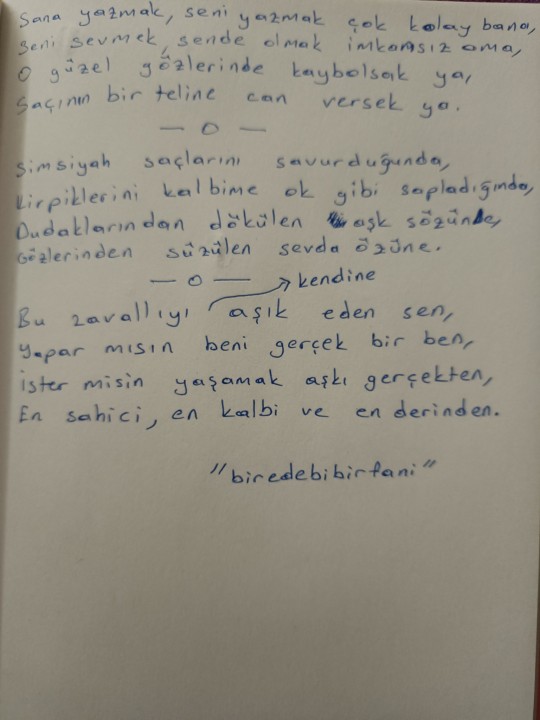 Sana yazmak, seni yazmak çok kolay bana,
Seni sevmek, sende olmak imkansız ama,
O güzel gözlerinde kaybolsak ya,
Saçının bir teline can versek ya.
— O —
Simsiyah saçlarını savurduğunda,
Kirpiklerini kalbime ok gibi sapladığında,
Dudaklarından dökülen aşk sözünle,
Gözlerinden süzülen sevda özüne.
— O —
kendine
Bu zavallıyı aşık eden sen,
Yapar mısın beni gerçek bir ben,
İster misin yaşamak aşkı gerçekten,
En sahici, en kalbi ve en derinden.
"biredebibirfani"